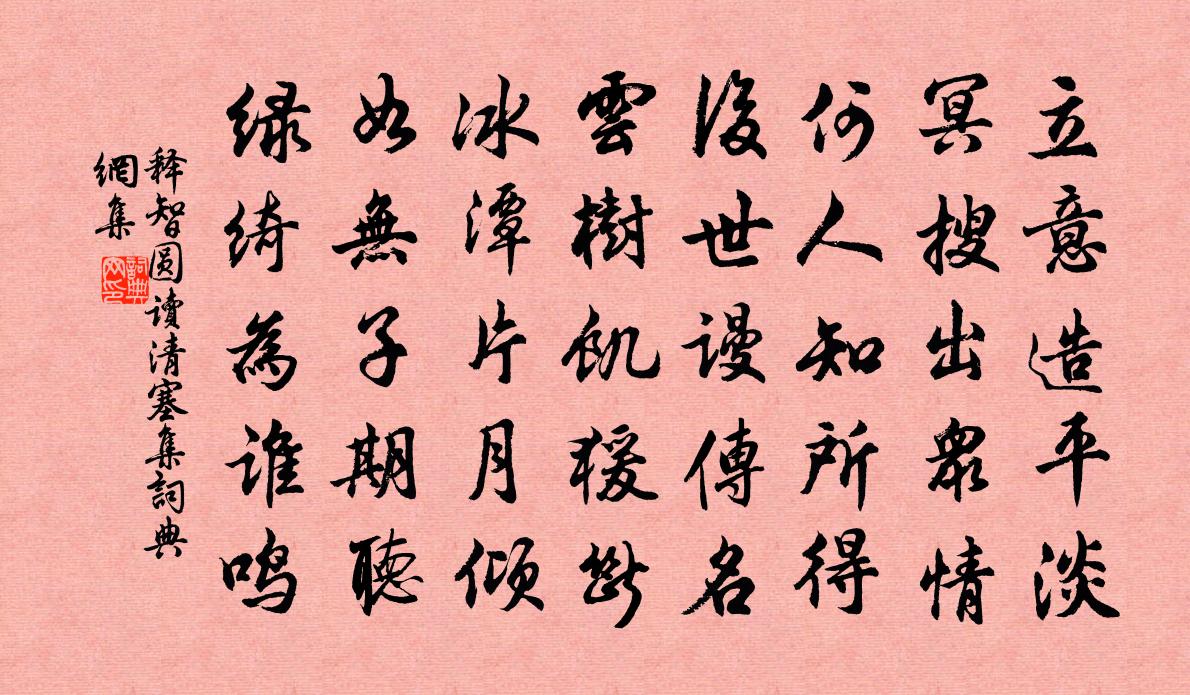 立意造平淡
冥搜出衆情
何人知所得
後世謾傳名
雲樹飢猨斷
冰潭片月傾
如無子期聽
绿绮為誰鳴
释智圆讀清塞集詞典
網集
詞典網印